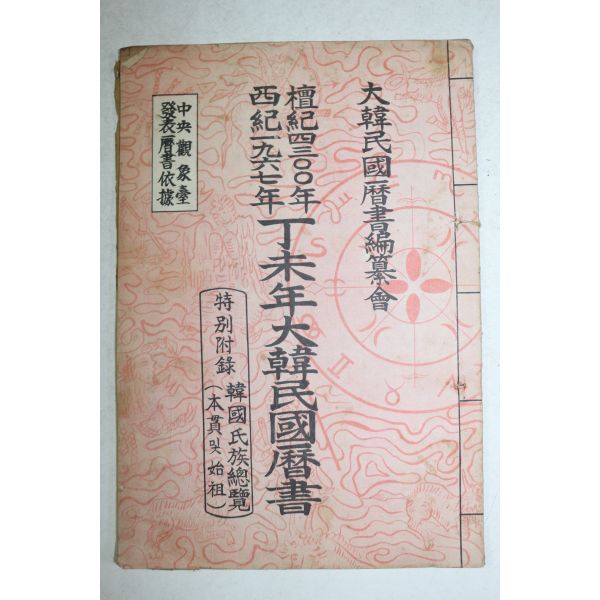 大韓民國曆書編纂會
檀紀四三〇〇年
西紀一九六七年
丁未年大韓民國曆書
特别附錄
韓國氏族總覽
(本貫및始祖)
中央觀象臺
發表曆書依據